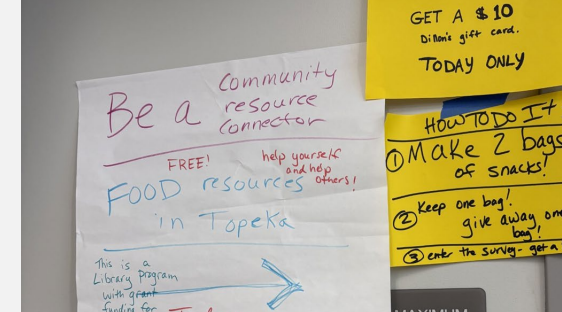 Be a
community
resource
connector
FREE!
help yourself
and help
others!
FOOD resources
in Topeka
This is a
Library program
with grant
funding for
GET A $10
Dillon's gift card.
TODAY ONLY
HOW TO DO IT
① Make 2 bags
of snacks!
② Keep one bag!
give away one
bag!
③ enter the survey - get a
MAXIMUM